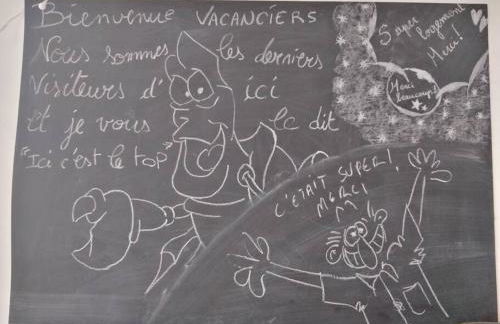 Bienvenue VACANCIERS
Nous sommes les derniers
Visiteurs d' ici
Et je vous le dit
"Ici c'est le top"
Super
logement
Merci!
Merci
Beaucoup!
C'ETAIT SUPER!,
MERCI